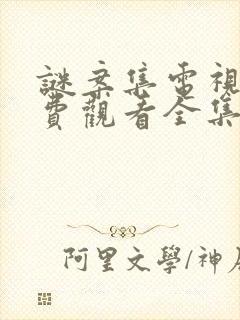 謎案集電視
費觀看全集
阿里文學/神